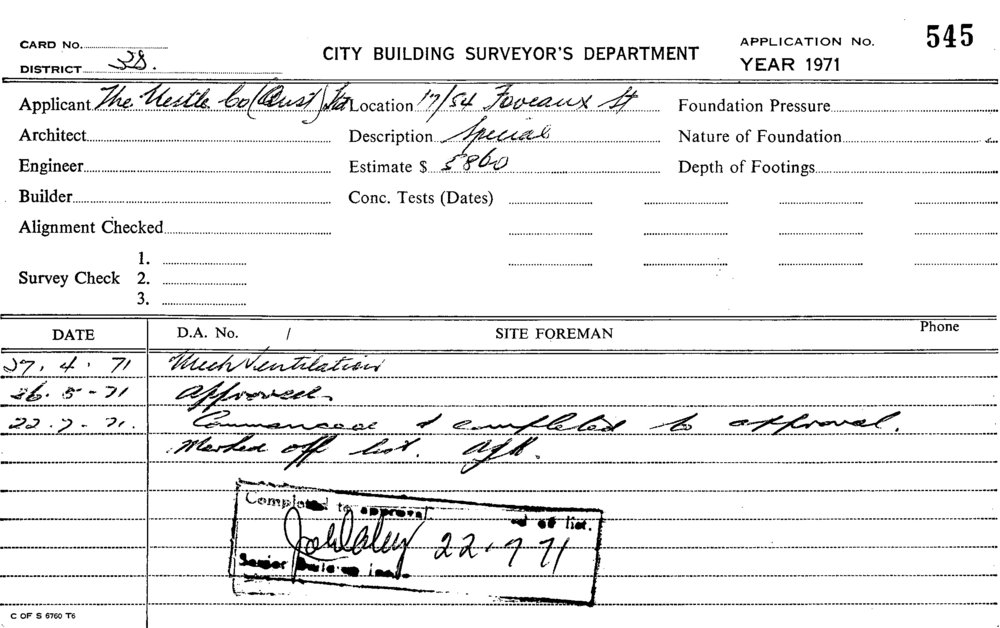 CARD No.
CITY BUILDING SURVEYOR'S DEPARTMENT
APPLICATION No. 545
DISTRICT 28.
YEAR 1971
Applicant The Nestle Co (Aust) Ltd Location 17/54 Foveaux St Foundation Pressure
Architect Description Special Nature of Foundation
Engineer Estimate $ 5860 Depth of Footings
Builder Conc. Tests (Dates)
Alignment Checked
1.
Survey Check 2.
3.
DATE D.A. No. / SITE FOREMAN Phone
27. 4. 71 Mech Ventilation
26. 5-71 Approved.
22-7-71. Commenced & completed to approval.
Marked off list.
Completed to approval
of list.
22.7 71
Senior Building
C OF S 6760 T6